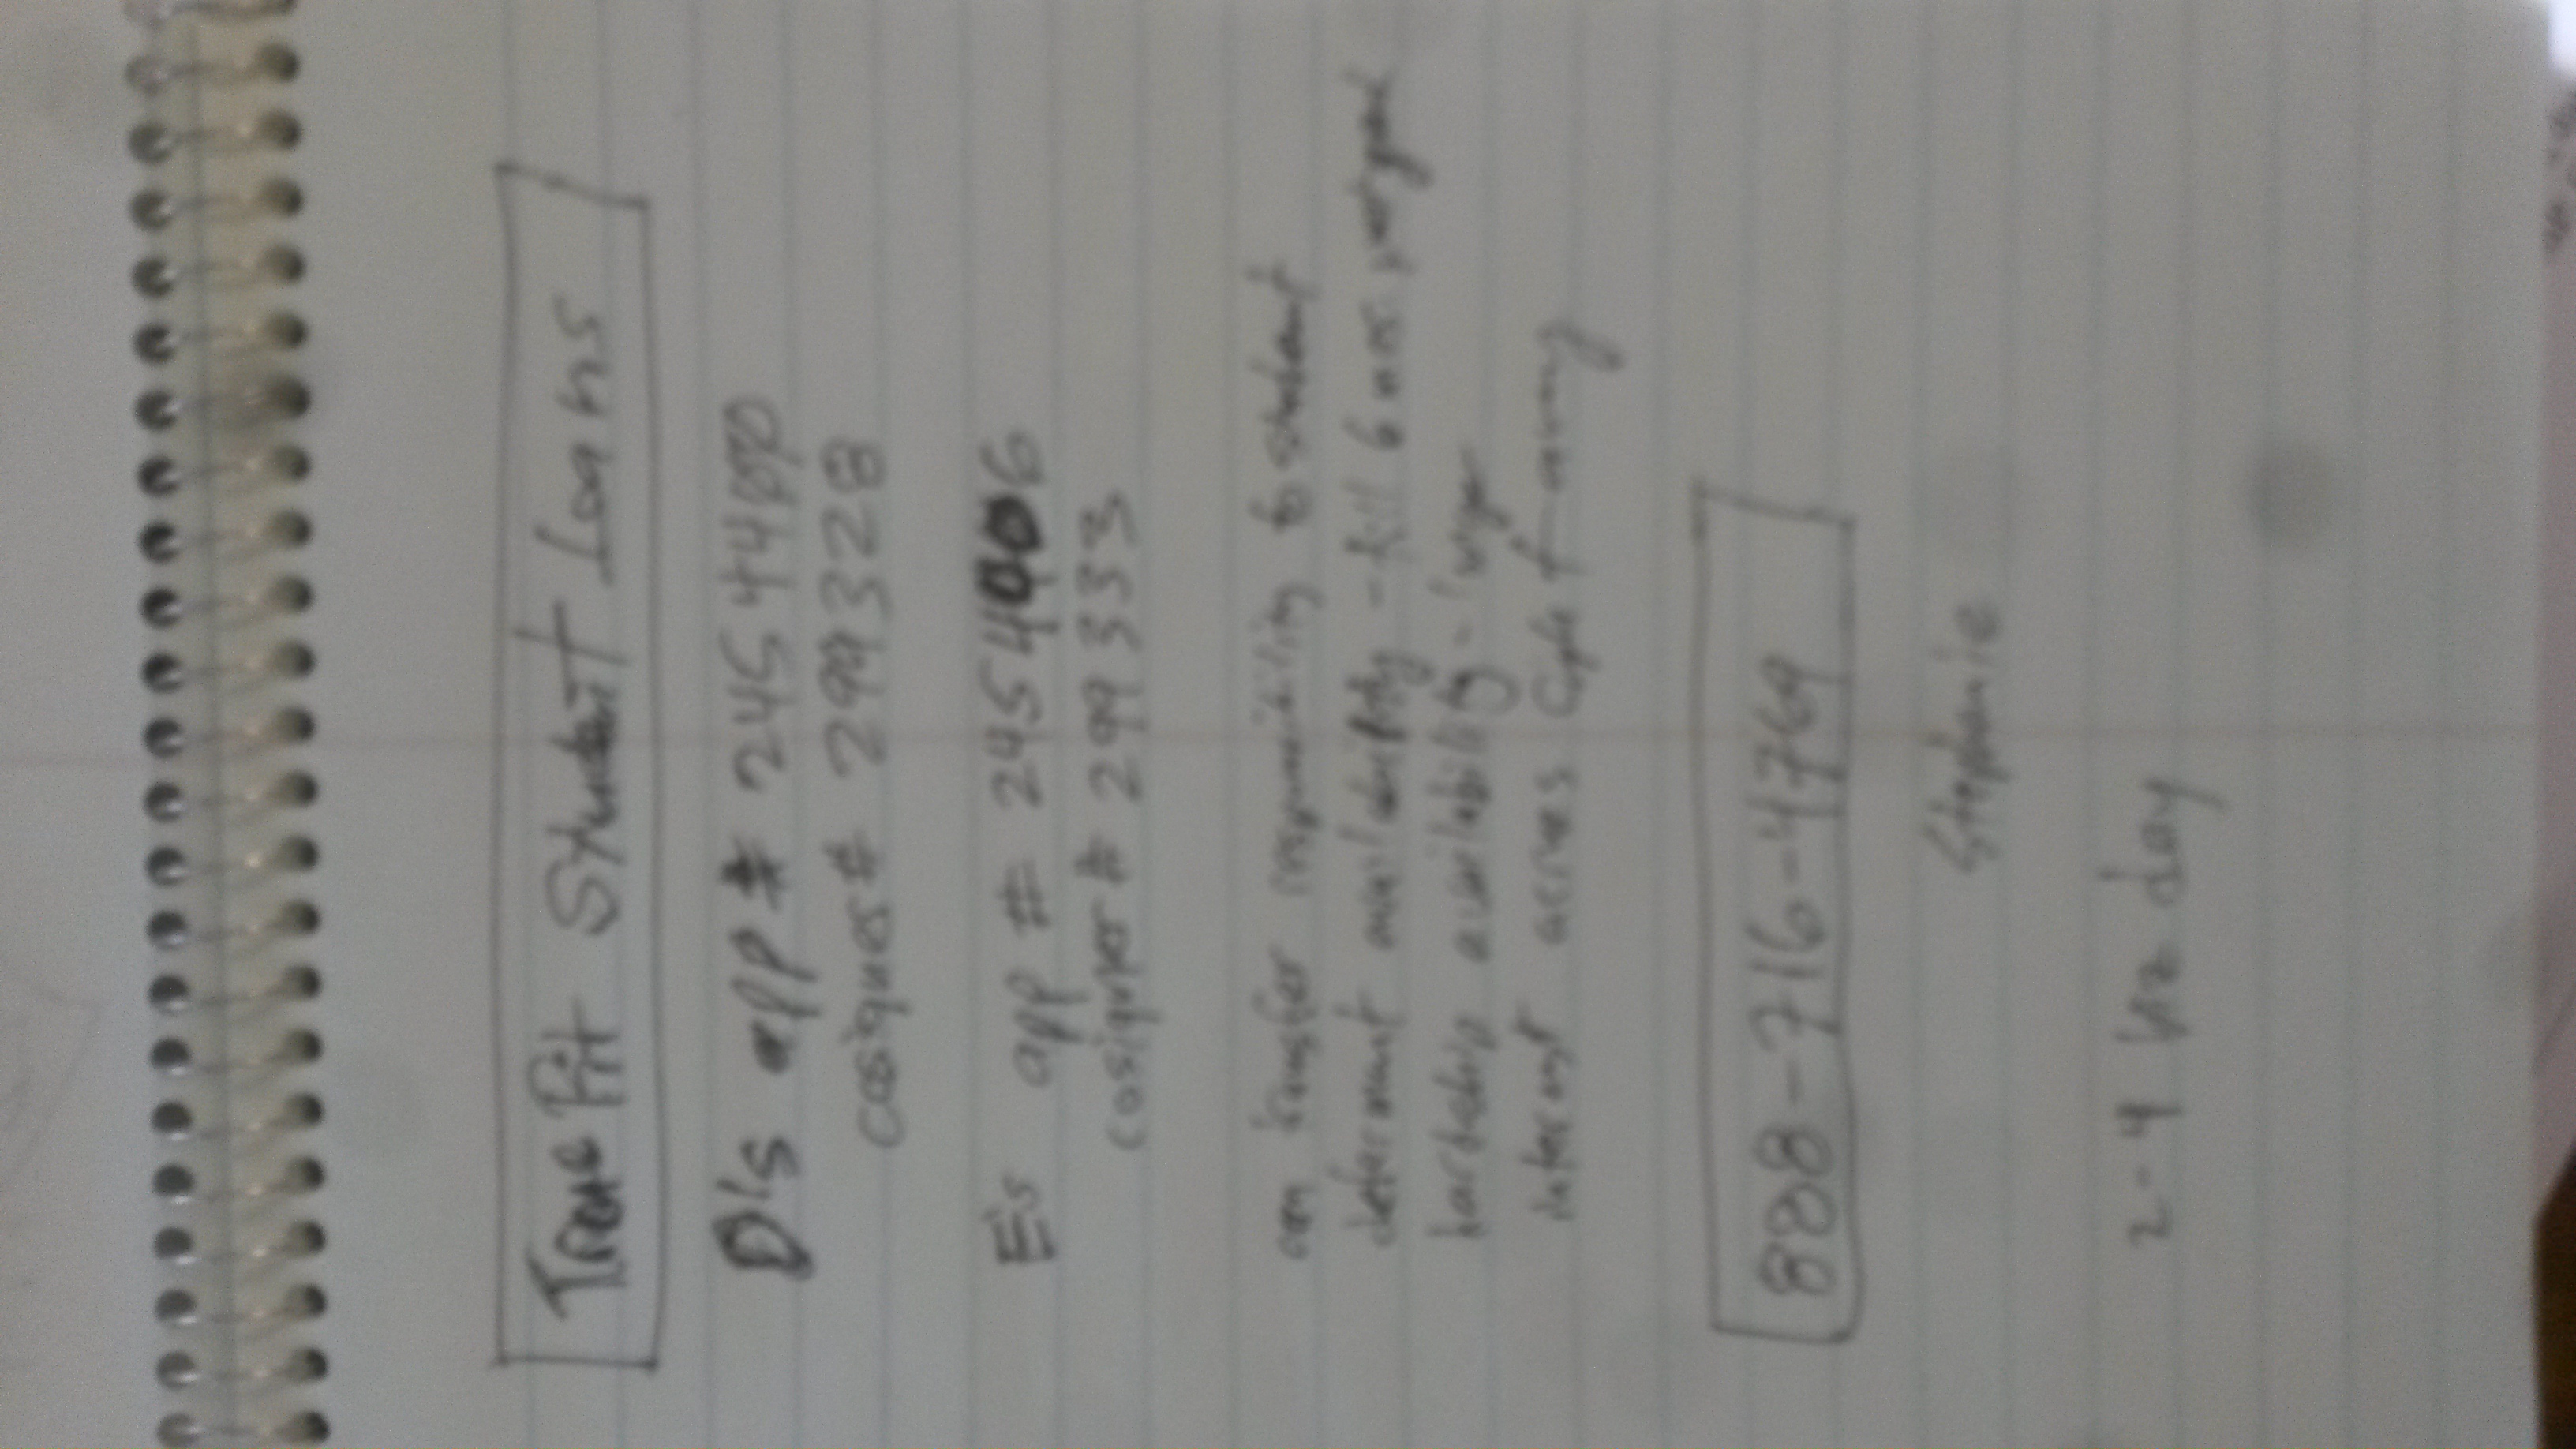 Student Loans
D's app # 2454400
cosigner # 299328
E's app # 2454006
cosigner # 299333
can transfer responsibility to student
deferment availability - full 6 mos
hardship availability -
interest accrues
888-716-4769
Stephanie
2-4 biz day